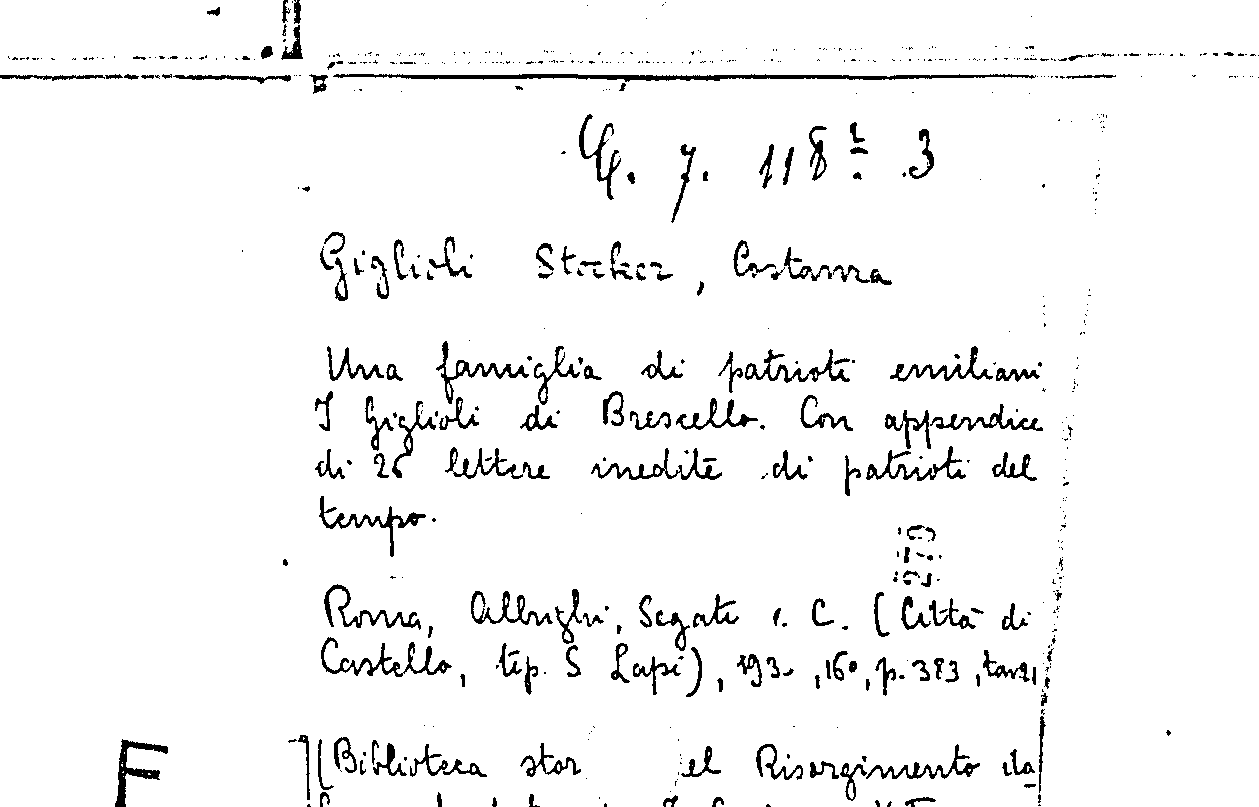 7. 118 3
Giglioli Stocker, Costanza
Una famiglia di patrioti emiliani
I Giglioli di Brescello. Con appendice
di 26 lettere inedite di patrioti del
tempo.
270
Roma, Albrighi, Segati e. C. (Città di
Castello, tip. S Lapi), 193 , 16°, p. 383, tav.
F
[(Biblioteca stor el Risorgimento ita